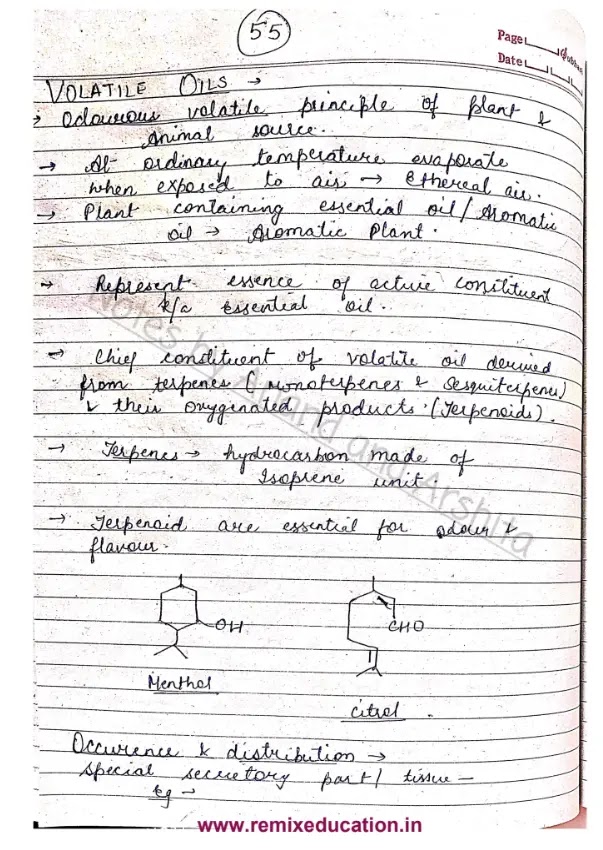 55
Page
Date
VOLATILE OILS →
→ Odourous volatile principle of plant &
Animal source.
→ At ordinary temperature evaporate
when exposed to air → Ethereal air.
→ Plant containing essential oil / Aromatic
oil → Aromatic Plant.
→ Represent essence of active constituent
k/a Essential oil.
→ Chief constituent of volatile oil derived
from terpenes (monoterpenes & Sesquiterpenes)
& their oxygenated products. (Terpenoids).
→ Terpenes → hydrocarbon made of
Isoprene unit.
→ Terpenoid are essential for odour &
flavour.
OH
CHO
Menthol
Citral
Occurence & distribution →
Special secretory part / tissue —
Eg →
Notes by Anand and Arshita
www.remixeducation.in